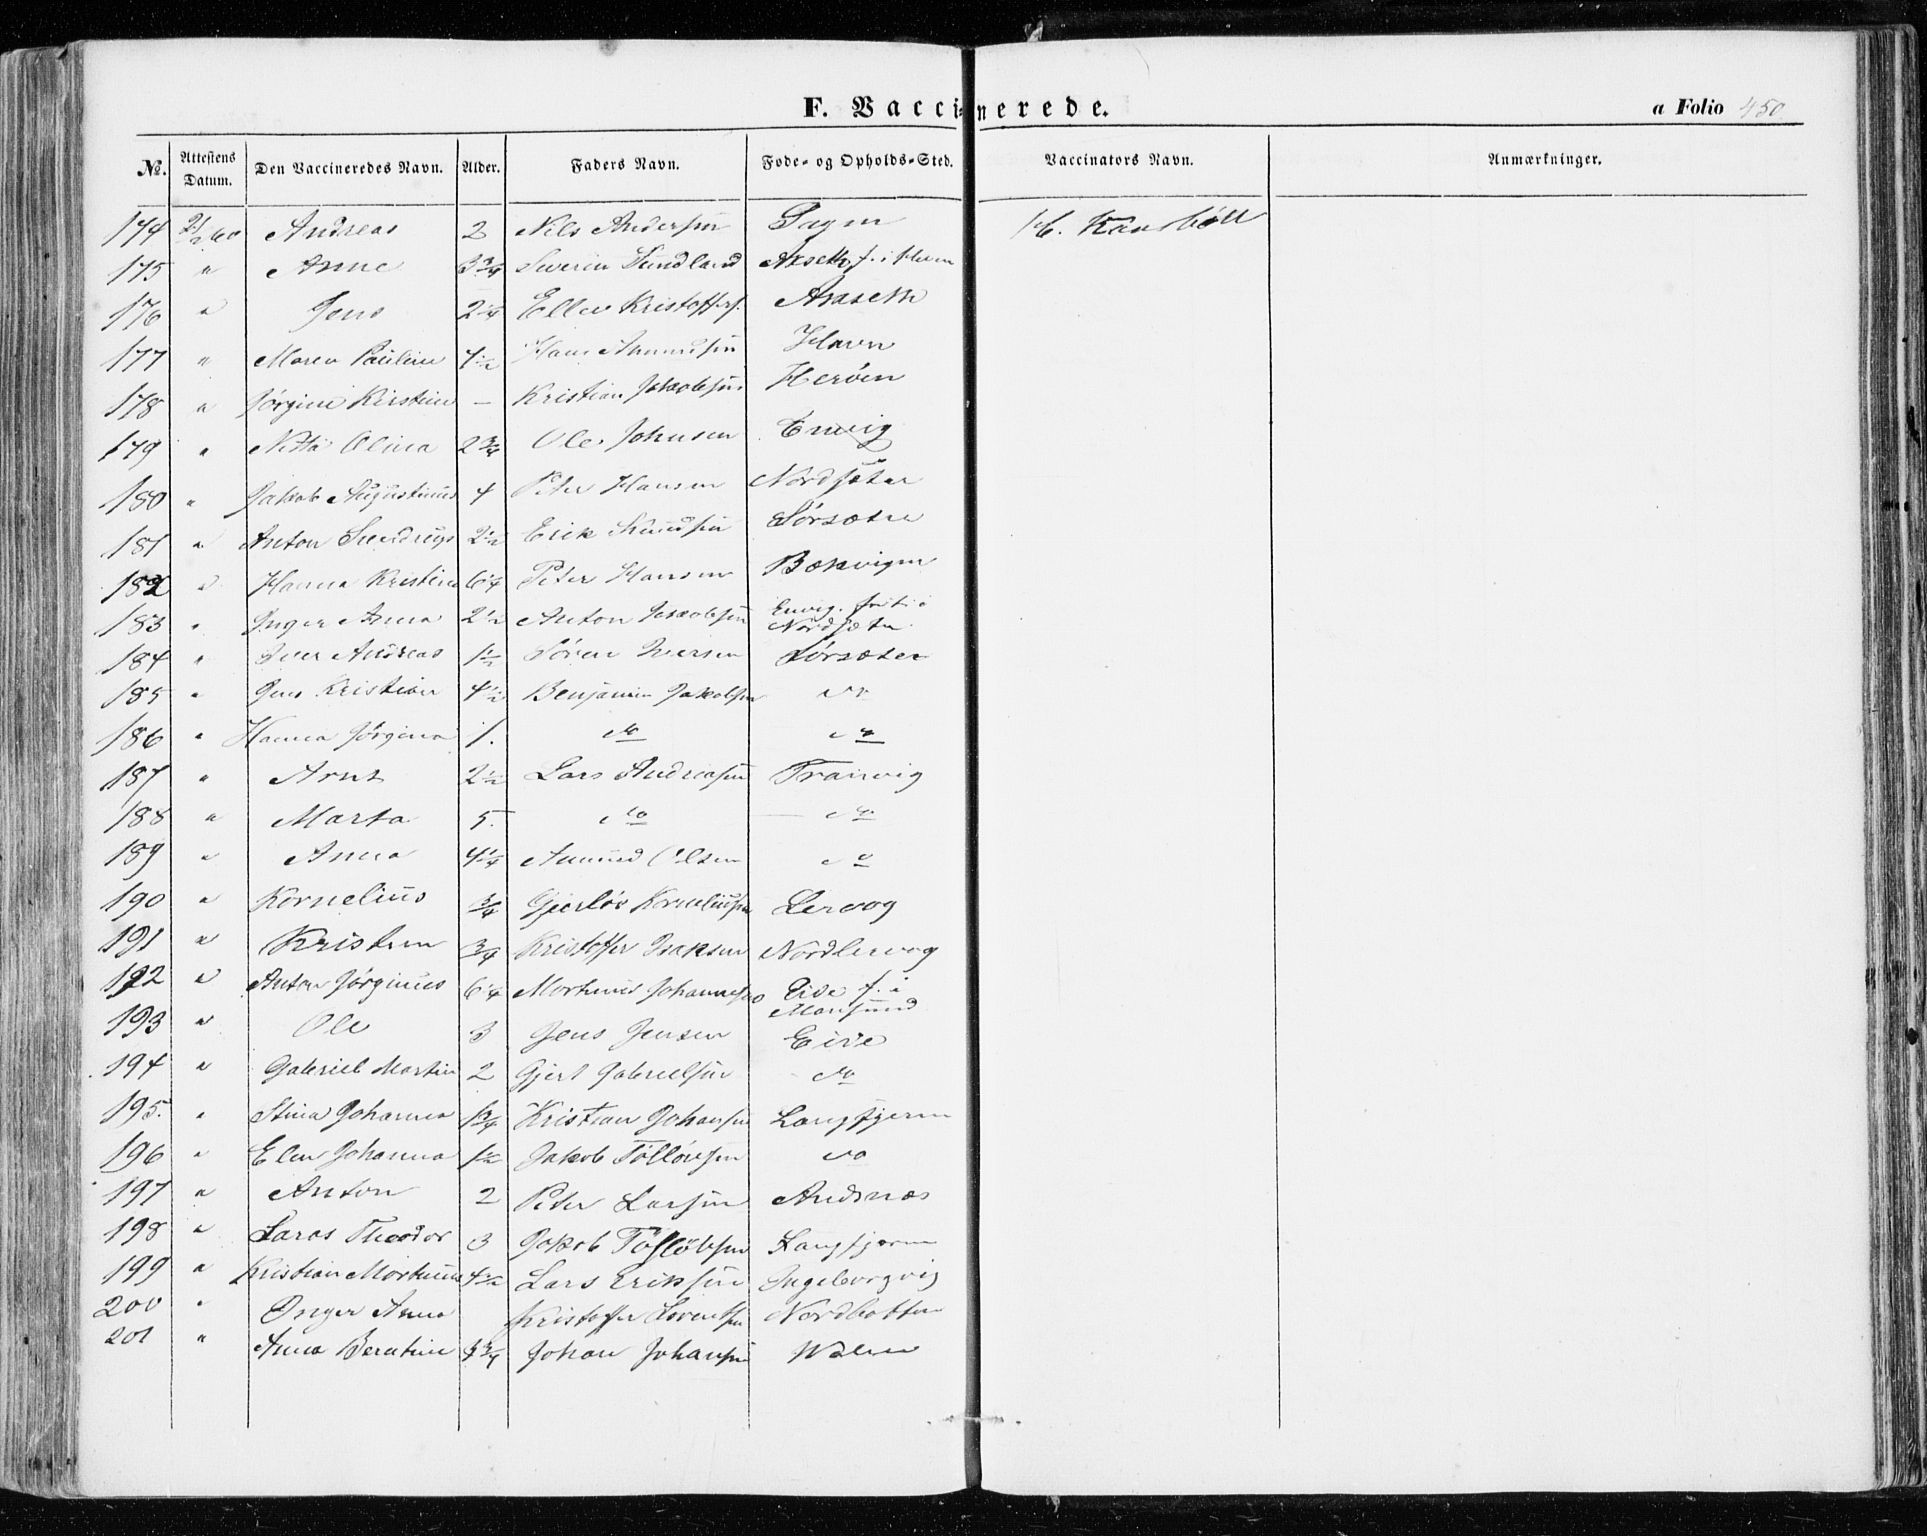 F. Vaccinerede.
a Folio 450
No. Attestens Datum. Den Vaccineredes Navn. Alder. Faders Navn. Føde- og Opholds-Sted. Vaccinators Navn. Anmærkninger.
174 2/2 60 Andreas 2 Nils Andersen
175 " Anne 3 3/4 Severin Sundland f. i
176 " Jens 2 1/4 Kristoffers.
177 " Maren Pauline 4 1/2 Hans Amundsen Havn
178 " Jørgine Kirstine — Kristian Jakobsen Herøen
179 " Olina 2 3/4 Ole Johnsen Envig
180 " Jakob Augustinus 4 Peter Hansen Nordsæter
181 " Anton 2 1/2 Erik Knudsen Sørsæter
182 " Hanna Kristine 6 1/4 Peter Hansen Bækvigen
183 " Inger Anna 2 1/2 Anton Jakobsen Envig. født i
Nordsæter
184 " Iver Andreas 1 1/2 Sören Iversen Sørsæter
185 " Jens Kristian 4 1/2 Benjamin Jakobsen do
186 " Hanna Jørgina 1. do do
187 " Arnt 2 1/2 Lars Andreasen Tranvig
188 " Marta 5. do do
189 " Anna 4 1/4 Amund Olsen do
190 " Kornelius 3/4 Gjerløv Korneliussen Lervog
191 " Kristen 3/4 Kristoffer Isaksen Nordlervog
192 " Anton Jørginus 6 1/4 Mortinus Johannesen Eide f. i
193 " Ole 3 Jens Jensen Eide
194 " Gabriel Martin 2 Gjert Gabrielsen do
195. " Stina Johanna 1 3/4 Kristian Johansen Langfjeren
196 " Elen Johanna 1 1/2 Jakob Tølløvsen do
197 " Anton 2 Peter Larsen Andsnæs
198 " Laros Theodor 3 Jakob Langfjeren
199 " Kristian Mortinus 4 1/2 Lars Eriksen Ingeborgvig
200 " Inger Anna Kristoffer Lorentsen Nordbotten
201 " Anna Beratine 3/4 Johan Johansen Walen